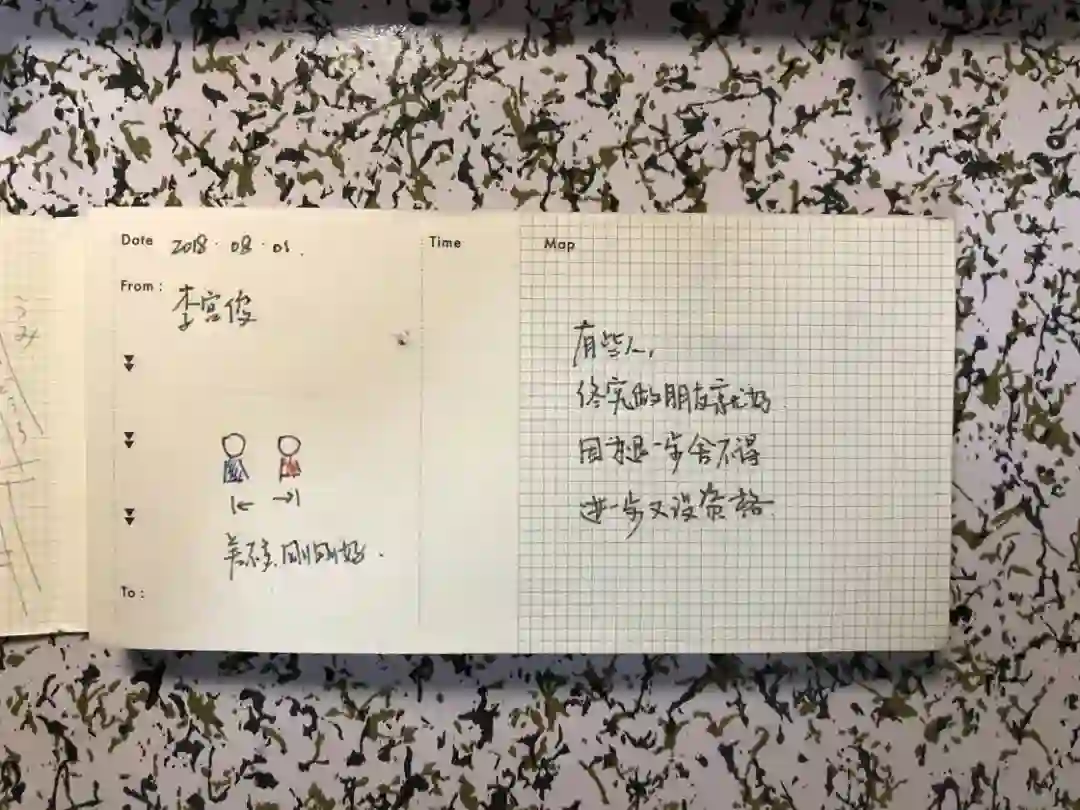 Date 2018.08.01.
Time
From: 李宫俊
有些人,
终究做朋友就好
因为退一步舍不得
进一步又没资格.
刚刚好.
To:
Map